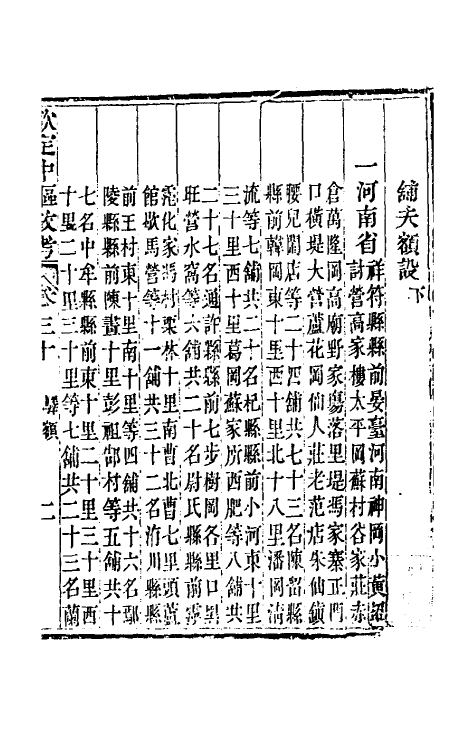 舖夫額設下
一河南省
祥符縣縣前晏臺河南神岡小黃
計營高家樓太平岡蘇村谷家莊赤
倉萬隆岡高廟野家瘍落里堤馮家寨正門
口橫堤大營蘆花岡仙人莊老范店朱仙鎮
腰兒鬧店等二十四舖共七十三名陳留縣
縣前韓岡東十里西十里北十八里潘岡清
流等七舖共二十名杞縣縣前小河東十里
三十里西十里葛岡蘇家所西肥等八舖共
二十七名通許縣縣前七步樹岡各里口
旺營水窩等六舖共二十名尉氏縣縣前
化家馮村栗林十里南曹北曹七里頭蘆
館歇馬營等十一舖共三十二名洧川縣縣
前王村東十里南十里等四舖共十六名鄢
陵縣縣前陳十里彭祖村等五舖共十
七名中牟縣縣前東十里二十里三十里西
十里二十里三十里等七舖共二十三名蘭
欽定中樞政考 卷三十 驛額 二